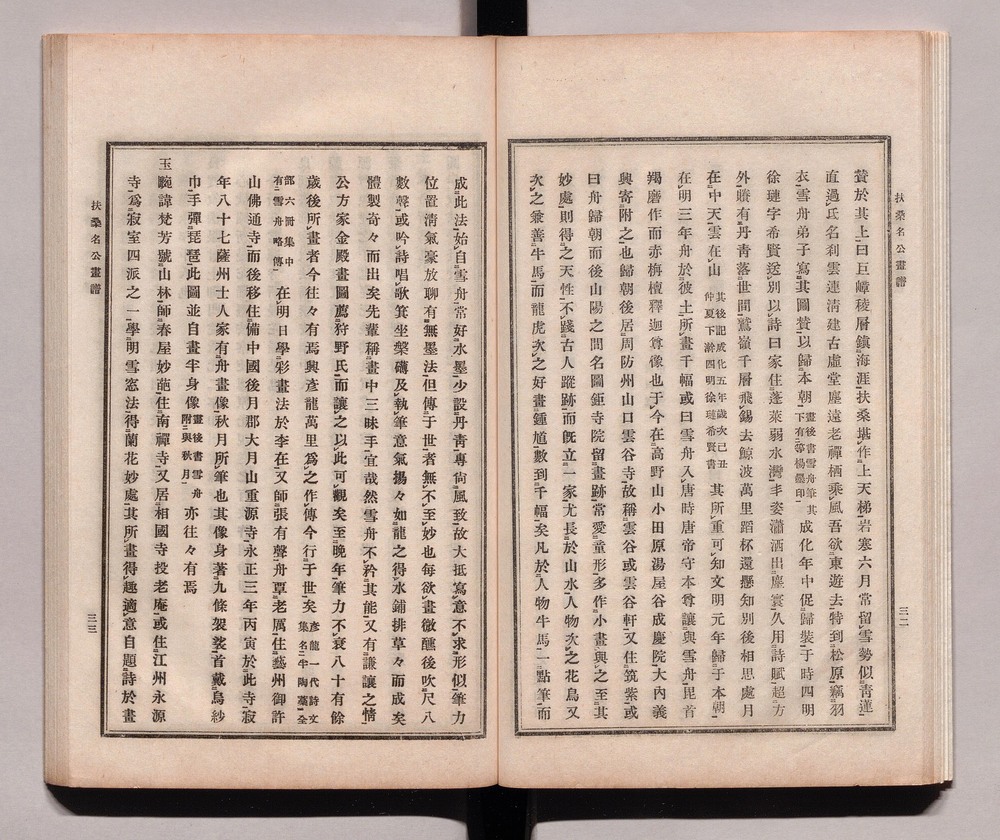 扶桑名公畫譜
三二
贊於其上曰巨嶂稜層鎮海涯扶桑堪作上天梯岩寒六月常留雪勢似靑蓮
直過氐名利雲連淸建古虛堂塵遠老禪栖乘風吾欲東遊去特到松原竊羽
衣雪舟弟子寫其圖贊以歸本朝畫後書雪舟筆其下有等楊墨印成化年中促歸裝于時四明
徐璉字希賢送別以詩曰家住蓬萊弱水灣丰姿瀟洒出塵寰久用詩賦超方
外賸有丹靑落世間鷲嶺千層飛錫去鯨波萬里蹈杯還懸知別後相思處月
在中天雲在山其後記成化五年歲次己丑仲夏下澣四明徐璉希賢書其所重可知文明元年歸于本朝
在明三年舟於彼土所畫千幅或曰雪舟入唐時唐帝守本尊讓與雪舟毘首
羯磨作而赤栴檀釋迦尊像也于今在高野山小田原湯屋谷成慶院大內義
興寄附之也歸朝後居周防州山口雲谷寺故稱雲谷或雲谷軒又住筑紫或
曰舟歸朝而後山陽之間名圖鉅寺院留畫跡常愛童形多作小畫與之至其
妙處則得之天性不踐古人蹤跡而旣立一家尤長於山水人物次之花鳥又
次之兼善牛馬而龍虎次之好畫鍾馗數到千幅矣凡於人物牛馬一點筆而
成此法始自雪舟常好水墨少設丹靑專尙風致故大抵寫意不求形似筆力
位置淸氣豪放聊有無墨法但傳于世者無不至妙也每欲畫微醺後吹尺八
數聲或吟詩唱歌箕坐槃礴及執筆意氣揚々如龍之得水鋪排草々而成矣
體製奇々而出矣先輩稱畫中三昧手宜哉然雪舟不矜其能又有謙讓之情
公方家金殿畫圖薦狩野氏而讓之以此可觀矣至晚年筆力不衰八十有餘
歲後所畫者今往々有焉與彥龍萬里爲之作傳今行于世矣彥龍一代詩文集名半陶藁全
部六冊集中有雪舟略傳在明日學彩畫法於李在又師張有聲舟覃老厲住藝州御許
山佛通寺而後移住備中國後月郡大月山重源寺永正三年丙寅於此寺寂
年八十七薩州士人家有舟畫像秋月所筆也其像身著九條袈裟首戴烏紗
巾手彈琵琶此圖並自畫半身像畫後書雪舟附與秋月亦往々有焉
玉畹諱梵芳號山林師春屋妙葩住南禪寺又居相國寺投老庵或住江州永源
寺爲寂室四派之一學明雪窓法得蘭花妙處其所畫得趣適意自題詩於畫
扶桑名公畫譜
三三